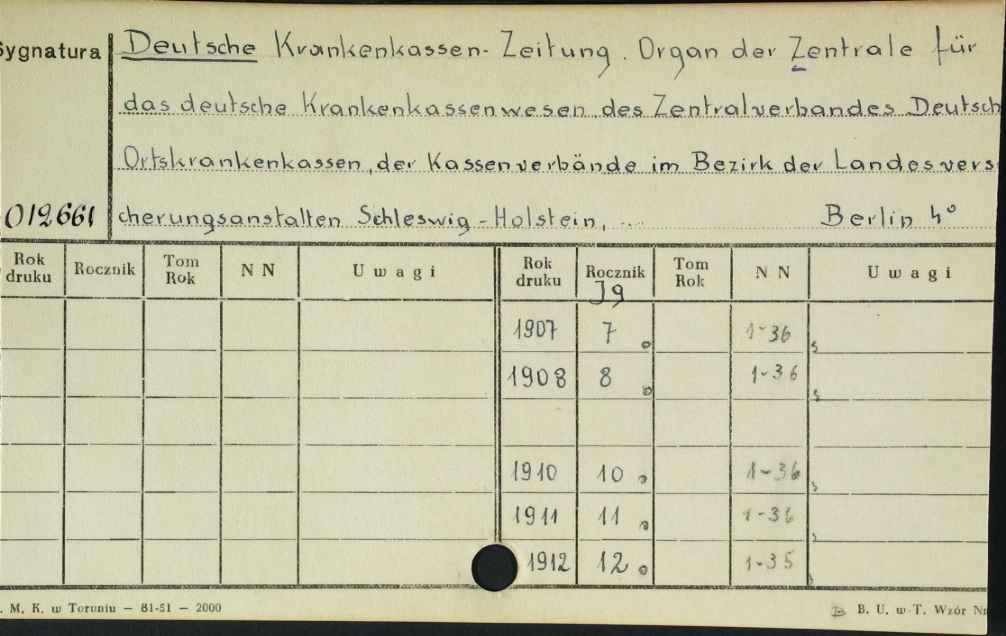 Sygnatura Deutsche Krankenkassen-Zeitung. Organ der Zentrale für
das deutsche Krankenkassenwesen, des Zentralverbandes Deutsch
Ortskrankenkassen, der Kassenverbände im Bezirk der Landesvers
012661 cherungsanstalten Schleswig-Holstein, ... Berlin 4°
Rok druku Rocznik Tom Rok N N Uwagi Rok druku Rocznik Tom Rok N N Uwagi
Jg
1907 7 1-36
1908 8 1-36
1910 10 1-36
1911 11 1-36
1912 12 1-35
. M. K. w Toruniu — 81-51 — 2000 B. U. w T. Wzór Nr